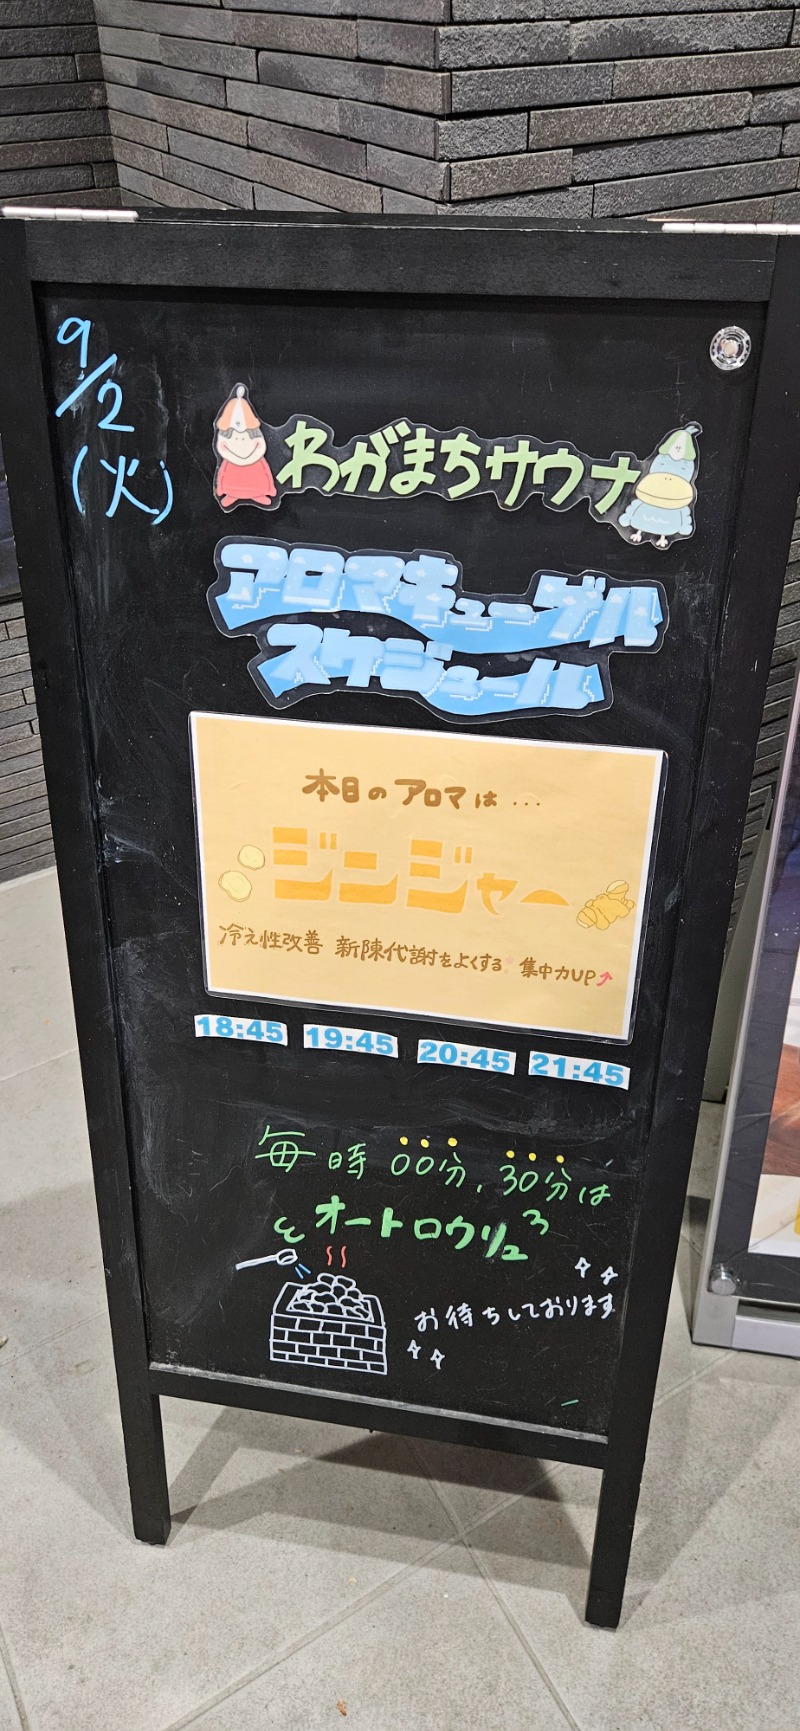 9/2
(火)
わがまちサウナ
アロマキューゲル
スケジュール
本日のアロマは...
ジンジャー
冷え性改善 新陳代謝をよくする 集中力UP↗
18:45 19:45 20:45 21:45
毎時00分、30分は
オートロウリュ
お待ちしております